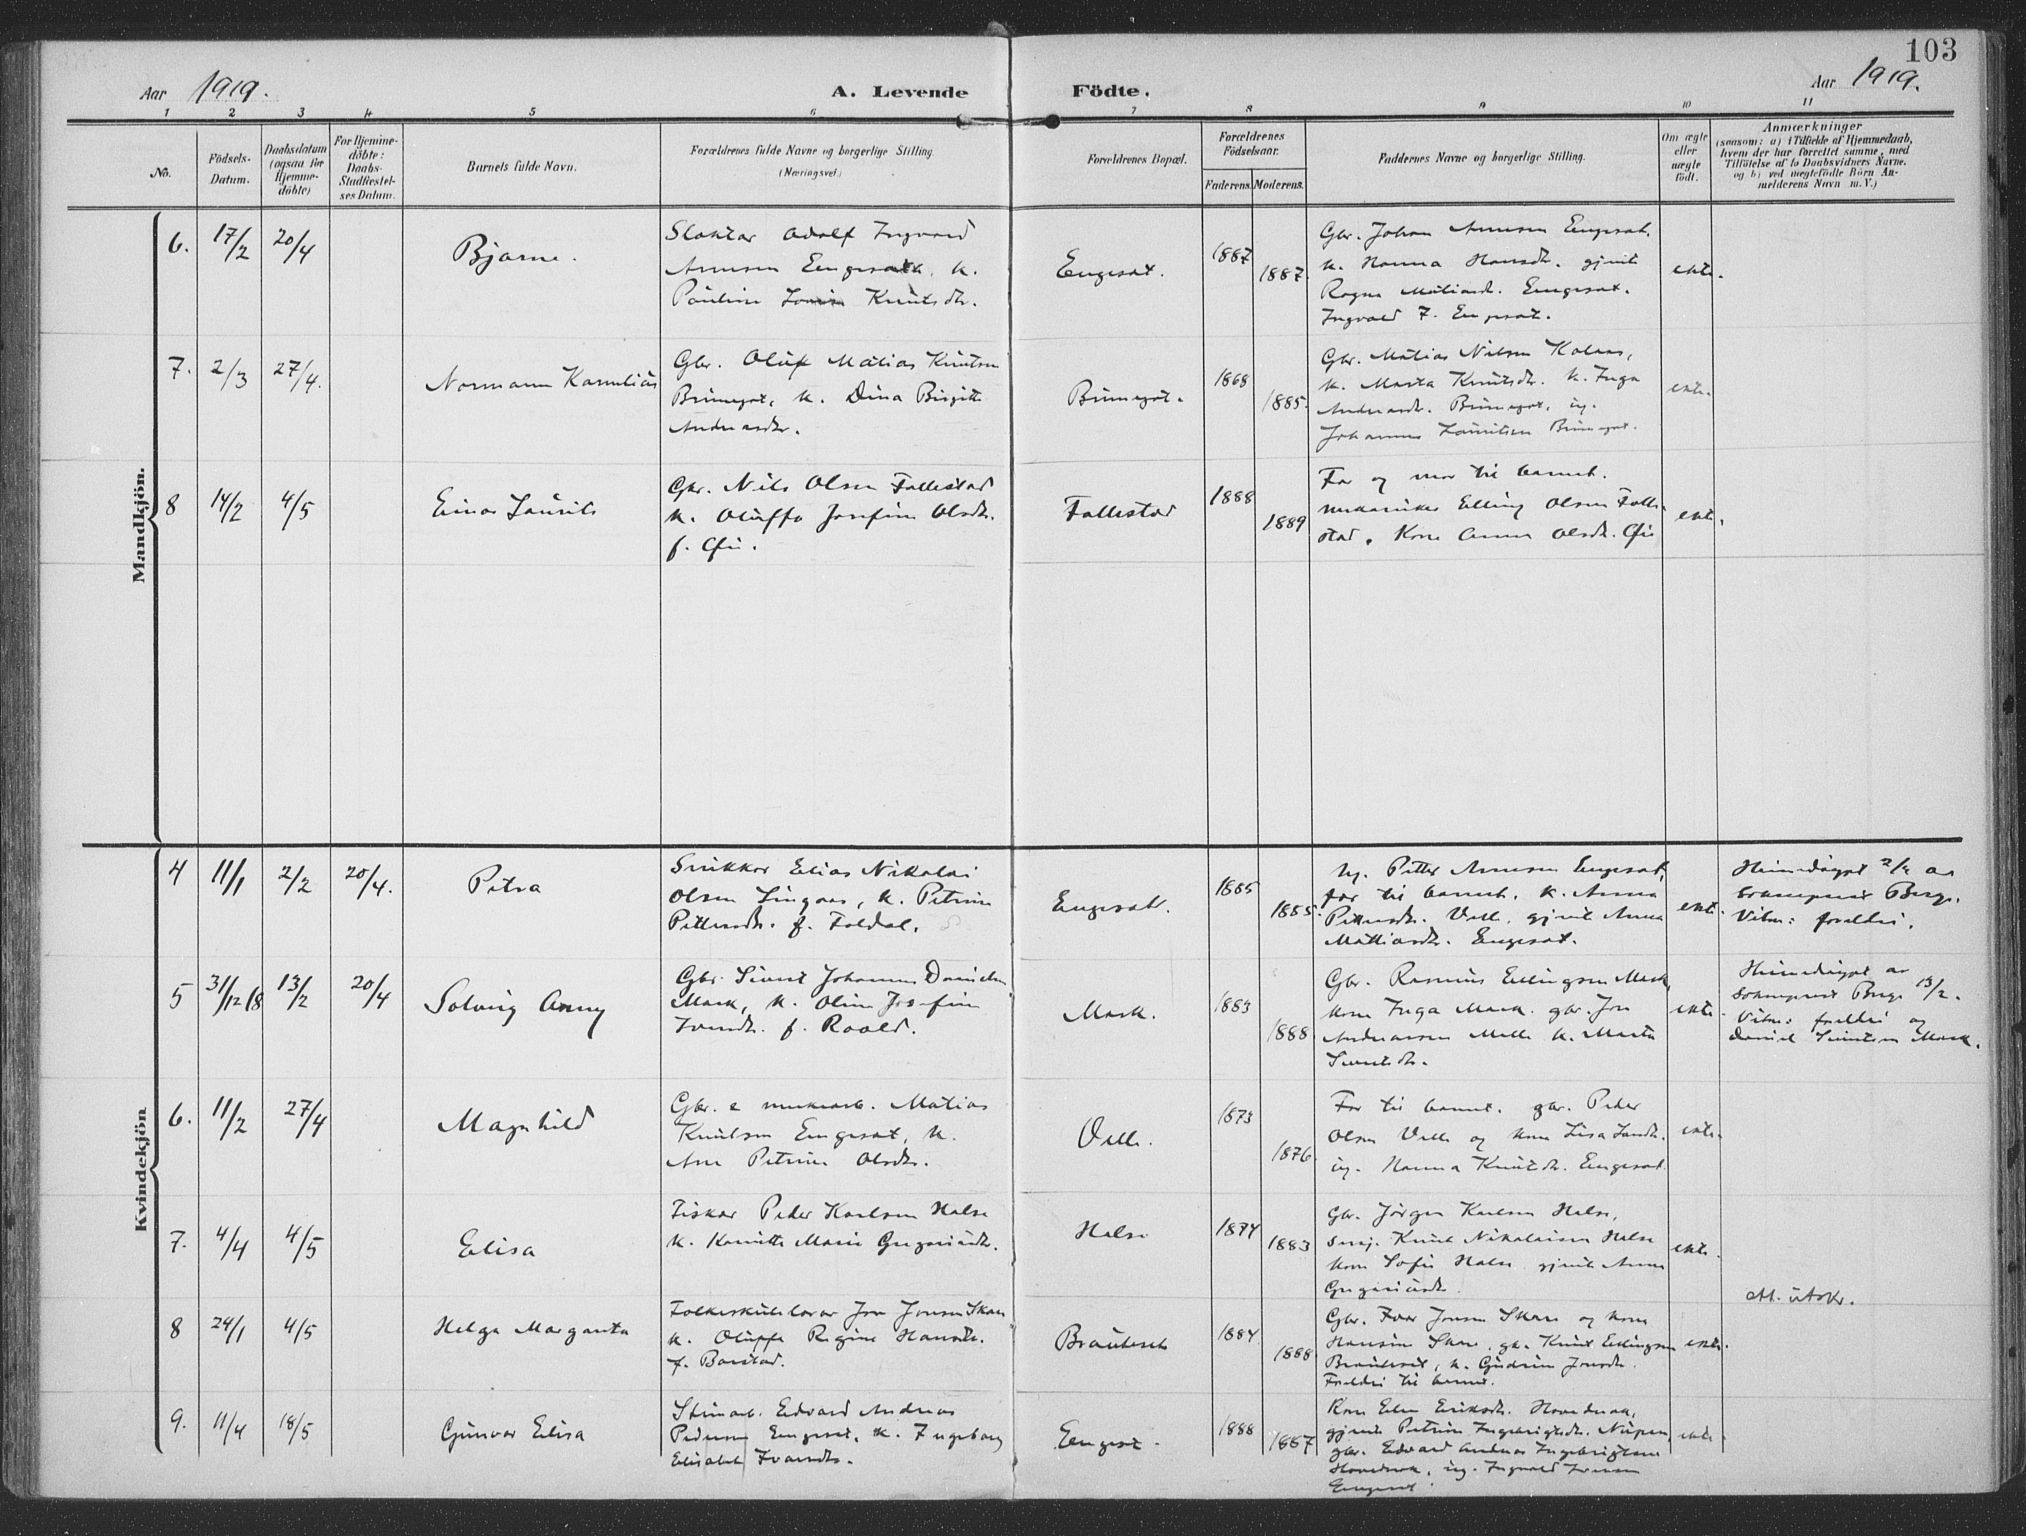 103
Aar 1919.
A. Levende Födte.
Aar 1919.
1 2 3 4 5 6 7 8 9 10 11
No.
Födsels-
Datum.
Daabsdatum
(ogsaa for
Hjemme-
döbte)
For Hjemme-
döbte:
Daabs-
Stadfæstel-
ses Datum.
Barnets fulde Navn.
Forældrenes fulde Navne og borgerlige Stilling.
(Næringsvei.)
Forældrenes Bopæl.
Forældrenes
Födselsaar.
Faderens. Moderens.
Faddernes Navne og borgerlige Stilling.
Om ægte
eller
uægte
født.
Anmærkninger
(saasom: a) i Tilfælde af Hjemmedaab,
hvem der har forrettet samme, med
Tilföielse af to Daabsvidners Navne.
og b) ved uægtefödte Börn An-
melderens Navn m. V.)
Mandkjön.
6. 17/2 20/4
Bjarne.
Slaktar Adolf Ingvald
Arnesen Engeset, k.
Pauline Lovise Knutsdtr.
Engeset.
1887
1887.
Gbr. Johan Arnesen Engeset.
k. Hanna Hansdtr. gjente
Ragna Matiasdtr. Engeset.
Ingvald F. Engeset.
ekte.
7. 2/3 27/4.
Normann Kornelius
Gbr. Oluf Matias Knutsen
Bruneset, k. Dina Birgitte
Andreasdtr.
Bruneset.
1868
1885.
Gbr. Matias Nilsen Kolaas,
k. Marta Knutsdtr. k. Inga
Andreasdtr. Bruneset, ug.
Johannes Lauritsen Bruneset.
ekte.
8 14/2 4/5
Einar Laurits
Gbr. Nils Olsen Follestad
k. Oluffa Josefine Olsdtr.
f. Øie.
Follestad
1888
1889
Far og mor til barnet.
mekaniker Elling Olsen Folle-
stad, Kone Anna Olsdtr. Øie
ekte.
Kvindekjön
4 11/1 2/2 20/4.
Petra
Snikkar Elias Nikolai
Olsen Lingaas, k. Petrine
Pettersdtr. f. Foldal.
Engeset.
1885
1885.
Ug. Petter Arnesen Engeset,
far til barnet, k. Anna
Pettersdtr. Velle, gjente Anna
Mattiasdtr. Engeset.
ekte.
Heimedøypt 2/2 av
sokneprest Berge.
Vitne: foreldri.
5 31/12 18 13/2 20/4
Solveig Anny
Gbr. Sivert Johannes Danielsen
Mork, k. Oline Josefine
Iversdtr. f. Roald.
Mork.
1883
1888
Gbr. Rasmus Ellingsen Mork,
kone Inga Mork. gbr. Jon
Andreassen Melle k. Marta
Sivertsdtr.
ekte.
Heimedøypt av
sokneprest Berge 13/2.
Vitne: foreldri og
Daniel Sivertsen Mork.
6. 11/2 27/4
Magnhild
Gbr. & murarb. Matias
Knutsen Engeset, k.
Ane Petrine Olsdtr.
Velle.
1873
1876
Far til barnet. gbr. Peder
Olsen Velle og kone Lisa Larsdtr.
ug. Hanna Knutsdtr. Engeset
ekte.
7. 4/4 4/5
Elisa
Fiskar Peder Karlsen Halse
k. Kamitte Marie Gregoriusdtr.
Halse
1874
1883
Gbr. Jørgen Karlsen Halse,
Knut Nikolaisen Halse
kone Sofie Halse gjente Anna
Gregoriusdtr.
ekte.
8 24/1 4/5
Helga Margareta
Folkeskulelærar Jon Jonsen Skare
k. Oluffa Regine Hansdtr.
f. Barstad.
Brauteset
1884
1888
Gbr. Ivar Jonsen Skare og kone
Hansine Skare, gbr. Knut Ellingsen
Brauteset, k. Gudrun Jonsdtr.
Foreldri til barnet.
ekte.
att. utskr.
9. 11/4 18/5
Gunvor Elisa
Steinarb. Edvard Andreas
Pedersen Engeset, k. Ingeborg
Elisabet Ivarsdtr.
Engeset.
1888
1887
Kone Elen Eriksdtr. Hovdenak,
gjente Petrine Ingebrigtsdtr. Nupen,
gbr. Edvard Andreas Ingebrigtsen
Hovdenak, ug. Ingvald Iversen
Engeset.
ekte.